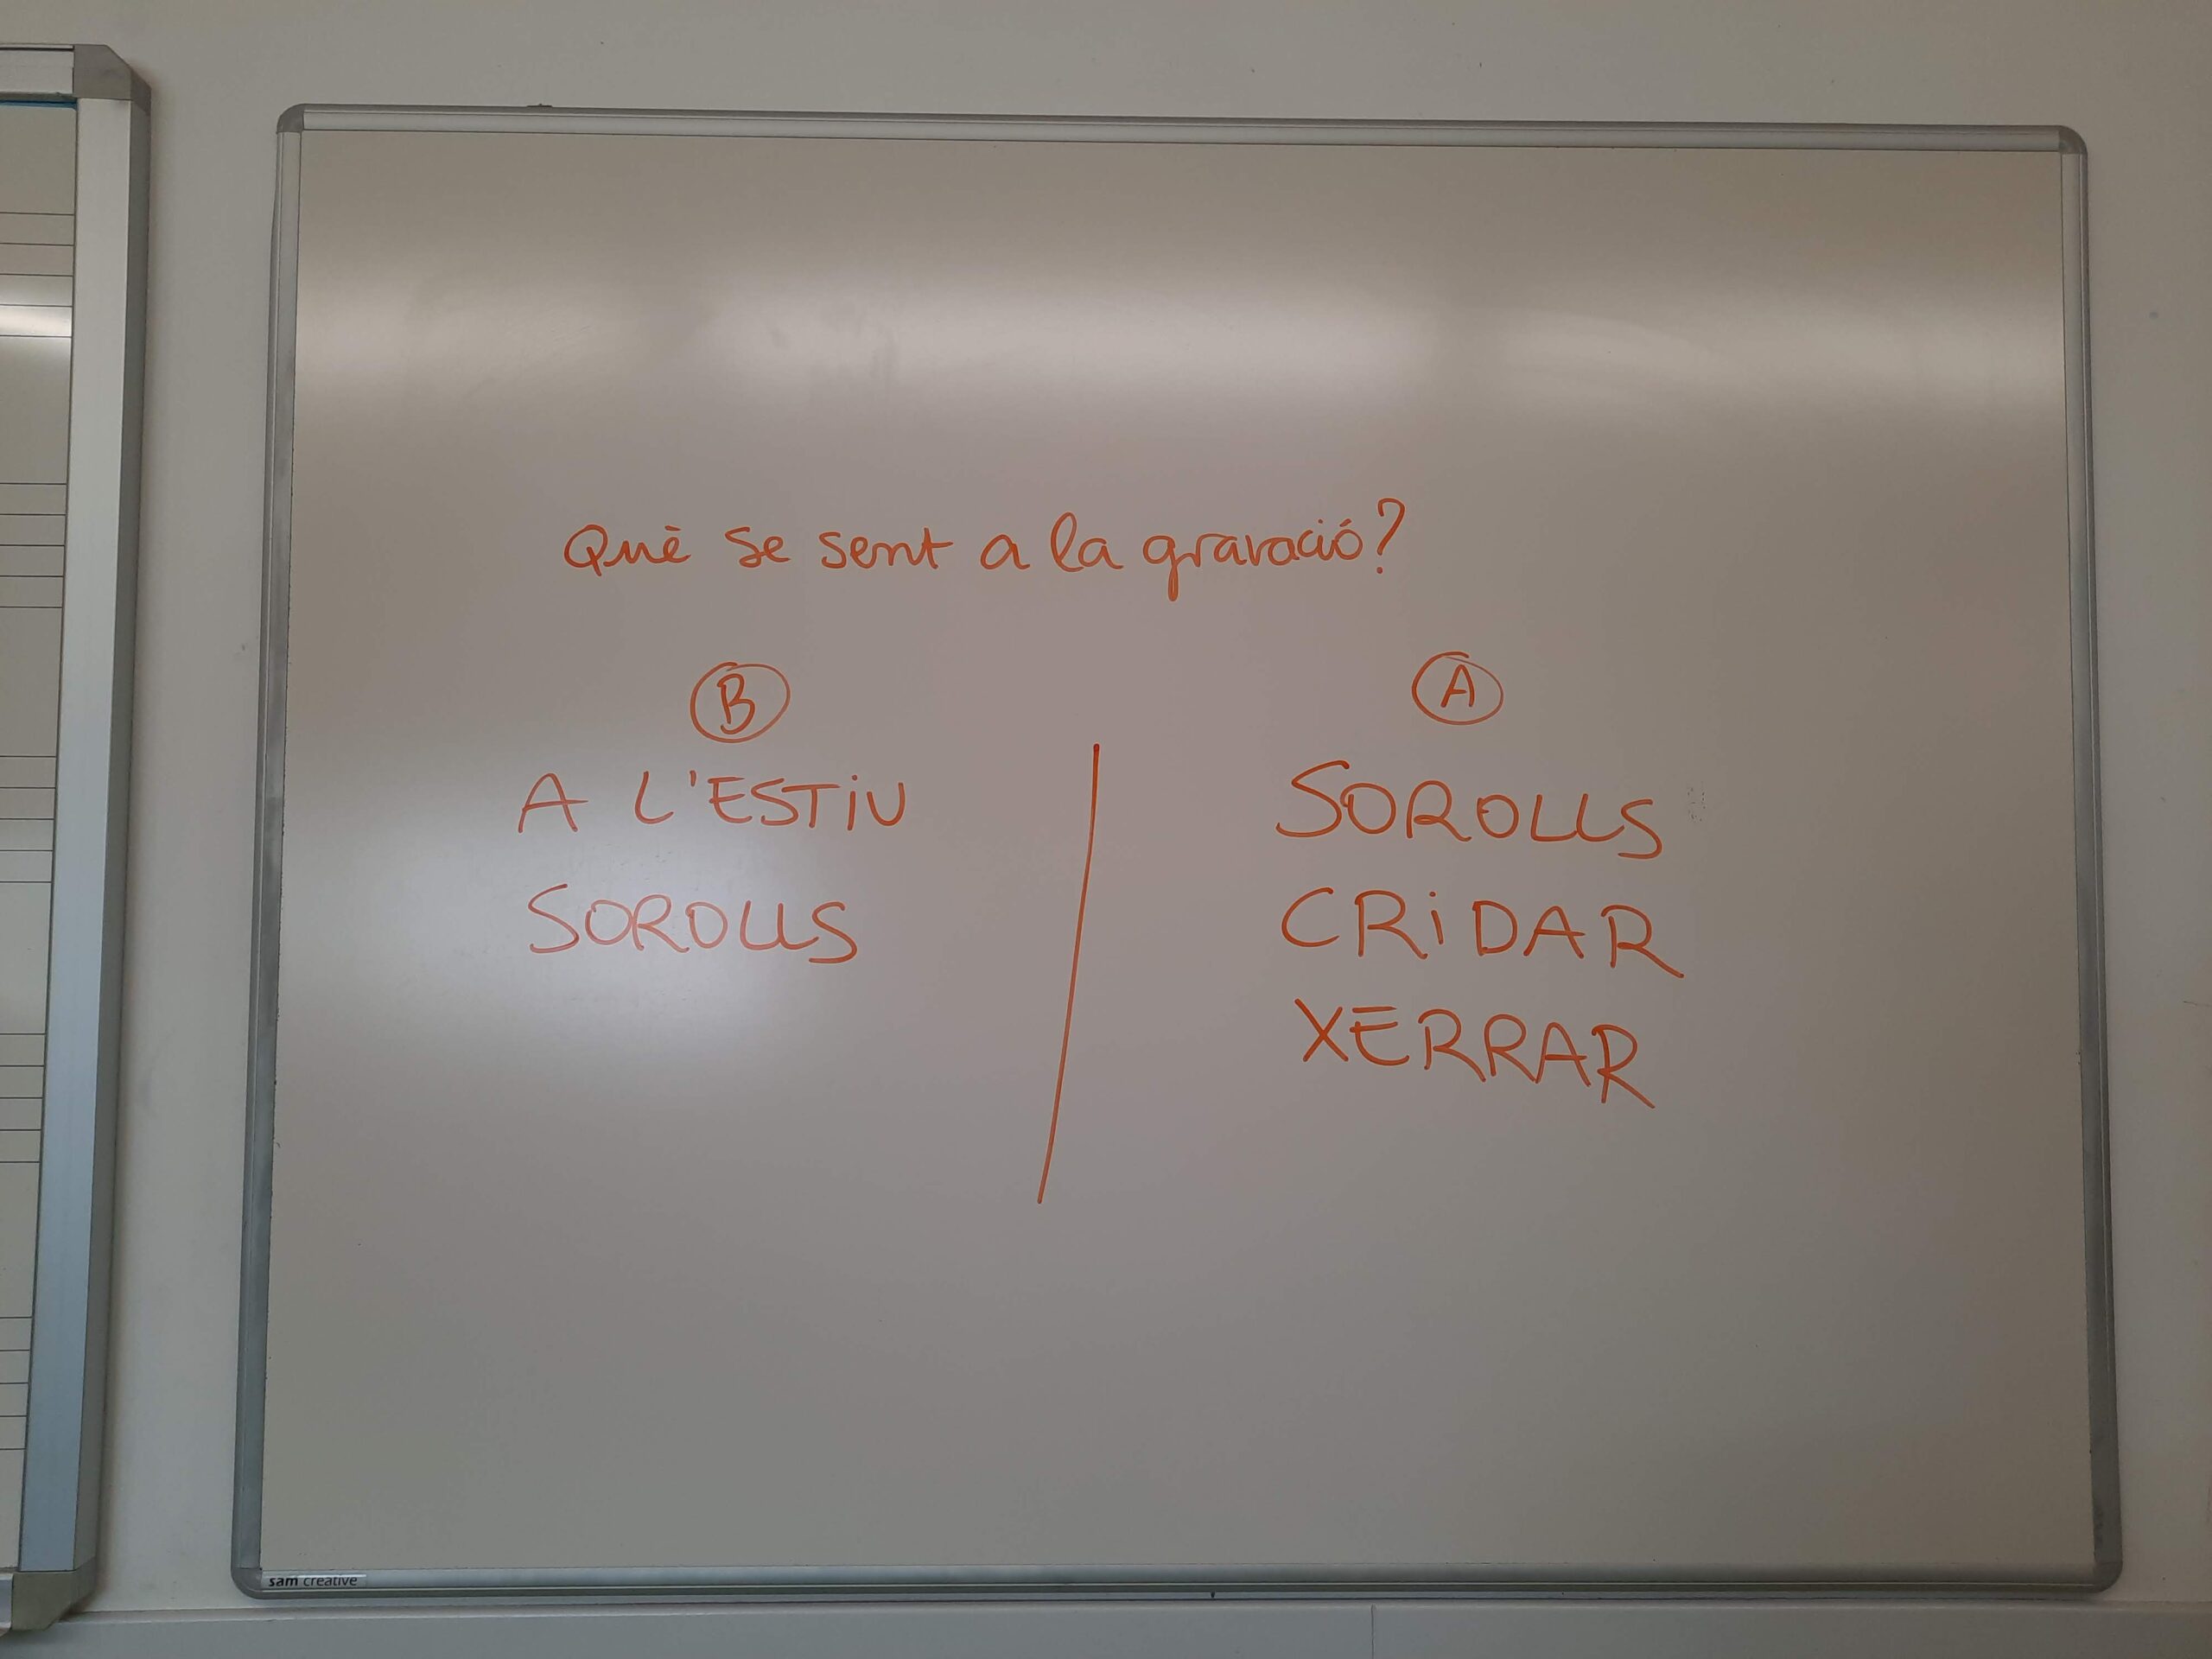 Què se sent a la gravació?
B
A L'ESTiU
SOROLLS
A
SOROLLS
CRiDAR
XERRAR
sam creative